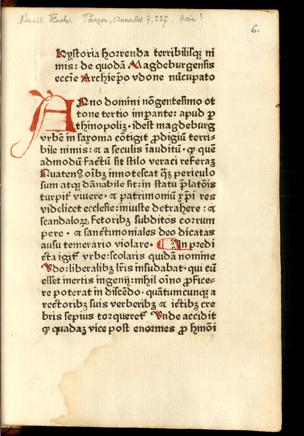 Basil. Rich. Panzer, Annales 4, 227. Hain?
6.
Hystoria horrenda terribilisq; ni
mis: de quodā Magdeburgensis
eccie Archiep̄o vdone nūcupato
Anno domini nōgentesimo ot
tone tertio imꝑante: apud ꝑ
thīnopolī: idest magdeburg
vrbē in saxonia cōtigit ꝓdigiū terri-
bile nimis: ⁊ a seculis īauditū · ꝙ que
admodū Factū sit stilo veraci referaꝫ
Quatenꝰ oībꝰ innotescat q̄ꝫ periculo
sum atqꝫ dānabile sit: in statu p̄latōis
turpit̄ viuere · ⁊ patrimoniū xp̄i res
videlicet ecclesie: iniuste detrahere: ⁊
scandalorꝫ fetoribꝫ subditos corrum
pere · ⁊ sanctimoniales deo dicatas
ausu temerario violare · In predi
cta igit̄ vrbe: scolaris quidā nomine
Vdo: liberalibꝰ lr̄is insudabat · qui cū
esset inertis ingenij: nihil oīno ꝓfice-
re poterat in discēdo · quātumcunqꝫ a
rectoribꝫ suis verberibꝫ ⁊ ictibꝫ cre
bris sepius torqueret̄ Vnde accidit
ꝙ quadaꝫ vice post enormes ꝑ hmōi